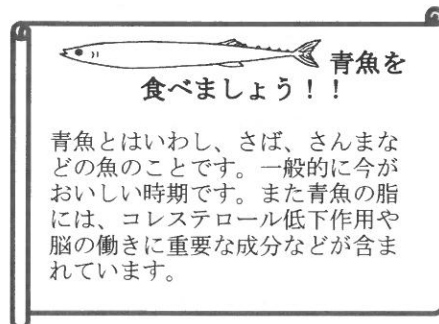 青魚を
食べましょう！！
青魚とはいわし、さば、さんまな
どの魚のことです。一般的に今が
おいしい時期です。また青魚の脂
には、コレステロール低下作用や
脳の働きに重要な成分などが含ま
れています。